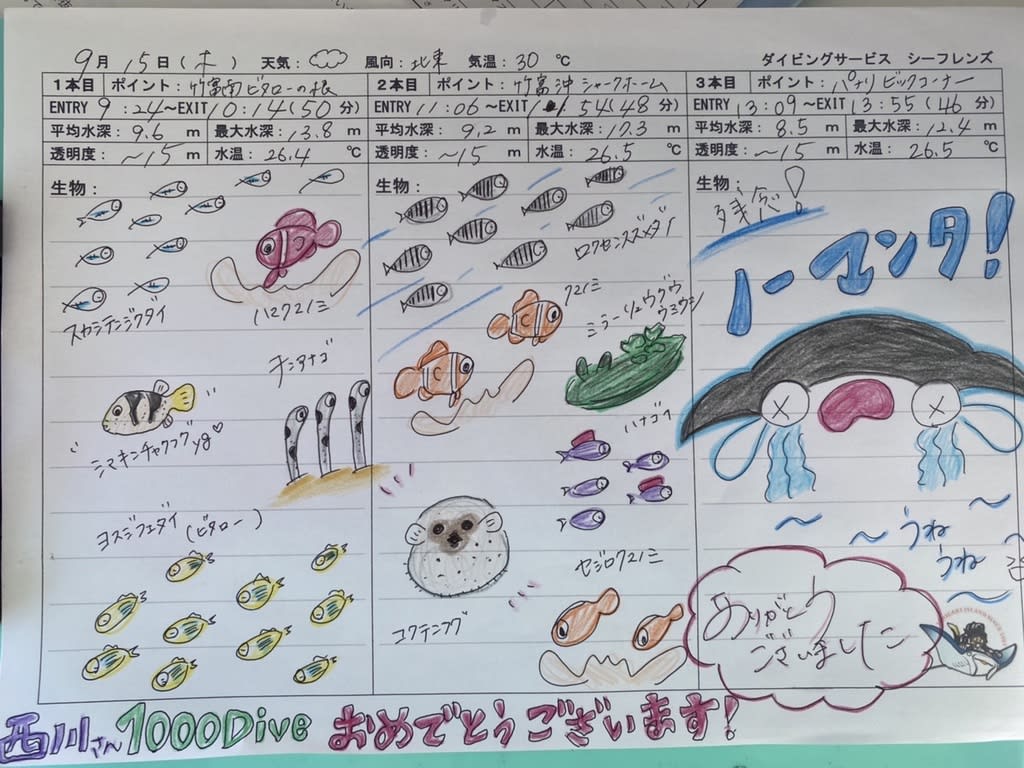 9月 15日(木) 天気: 風向: 北東 気温: 30 ℃ ダイビングサービス シーフレンズ
1本目 ポイント: 竹富南ビタローの根
ENTRY 9:24~EXIT 10:14(50分)
平均水深: 9.6 m 最大水深: 13.8 m
透明度: ~15 m 水温: 26.4 ℃
生物:
スカシテンジクダイ
ハマクマノミ
チンアナゴ
シマキンチャクフグyg♡
ヨスジフエダイ(ビタロー)
2本目 ポイント: 竹富沖シャークホーム
ENTRY 11:06~EXIT 11:54(48分)
平均水深: 9.2 m 最大水深: 17.3 m
透明度: ~15 m 水温: 26.5 ℃
生物:
ロクセンスズメダイ
クマノミ
ミラーリュウグウ
ウミウシ
ハナゴイ
コクテンフグ
セジロクマノミ
3本目 ポイント: パナリ ビッグコーナー
ENTRY 13:09~EXIT 13:55(46分)
平均水深: 8.5 m 最大水深: 12.4 m
透明度: ~15 m 水温: 26.5 ℃
生物:
残念!
ノーマンタ!
~ ~ うね
~ うね ~
ありがとう
ございました
西川さん 1000Dive おめでとうございます!